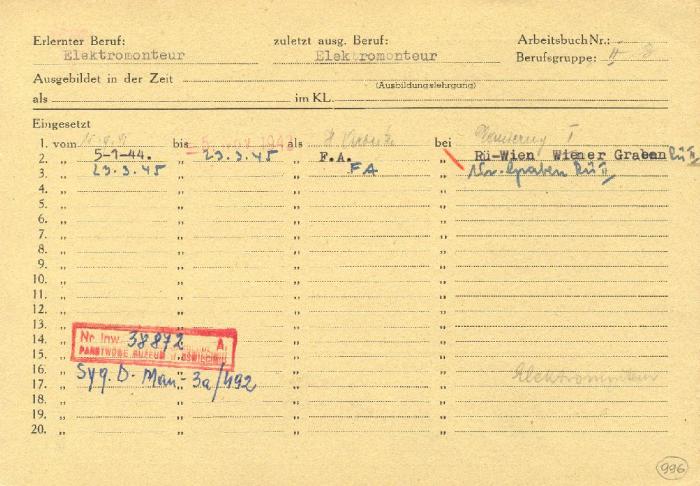 Erlernter Beruf: zuletzt ausg. Beruf: Arbeitsbuch Nr.:
Elektromonteur Elektromonteur Berufsgruppe: II
Ausgebildet in der Zeit
(Ausbildungslehrgang)
als im KL.
Eingesetzt
1. vom bis 1943 als bei I
2. " 5-1-44. " 23.3.45 " F.A. " Rü-Wien Wiener Graben Rü II
3. " 23.3.45 " " FA " Wr.-Graben Rü II
4. " " " "
5. " " " "
6. " " " "
7. " " " "
8. " " " "
9. " " " "
10. " " " "
11. " " " "
12. " " " "
13. " " " "
14. " " " "
15. " " " "
16. " " " "
17. " " " "
18. " " " "
19. " " " "
20. " " " "
Nr inw. 38872 A.
PAŃSTWOWE MUZEUM w OŚWIĘCIMIU
Syg. D-Mau-3a/492
996